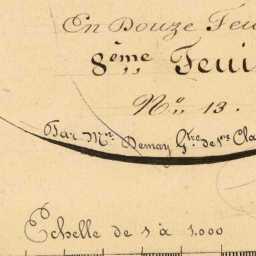 En Douze Feu
8ème Feui
No 13.
Par Mr Demay Gtre de 1re Cla
Echelle de 1 à 1.000